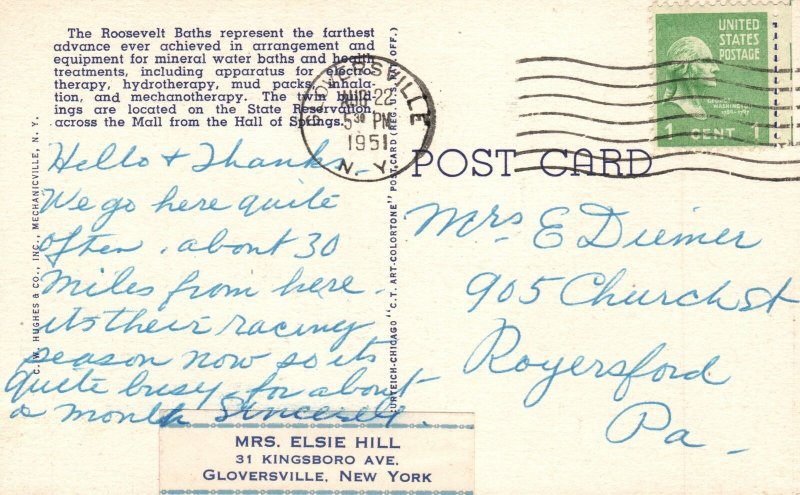 The Roosevelt Baths represent the farthest
advance ever achieved in arrangement and
equipment for mineral water baths and health
treatments, including apparatus for electro-
therapy, hydrotherapy, mud packs, inhala-
tion, and mechanotherapy. The twin build-
ings are located on the State Reservation,
across the Mall from the Hall of Springs.
C. W. HUGHES & CO., INC., MECHANICVILLE, N. Y.
Hello & Thanks -
We go here quite
often, about 30
miles from here.
its their racing
season now so its
quite busy for about
a month Sincerely.
MRS. ELSIE HILL
31 KINGSBORO AVE.
GLOVERSVILLE, NEW YORK
CURTEICH-CHICAGO "C.T. ART-COLORTONE" POST CARD (REG. U.S. PAT. OFF.)
GLOVERSVILLE
AUG 22
5 30 PM
1951
N. Y.
UNITED
STATES
POSTAGE
GEORGE
WASHINGTON
1 CENT 1
POST CARD
Mrs E Diemer
905 Church st
Royersford
Pa -